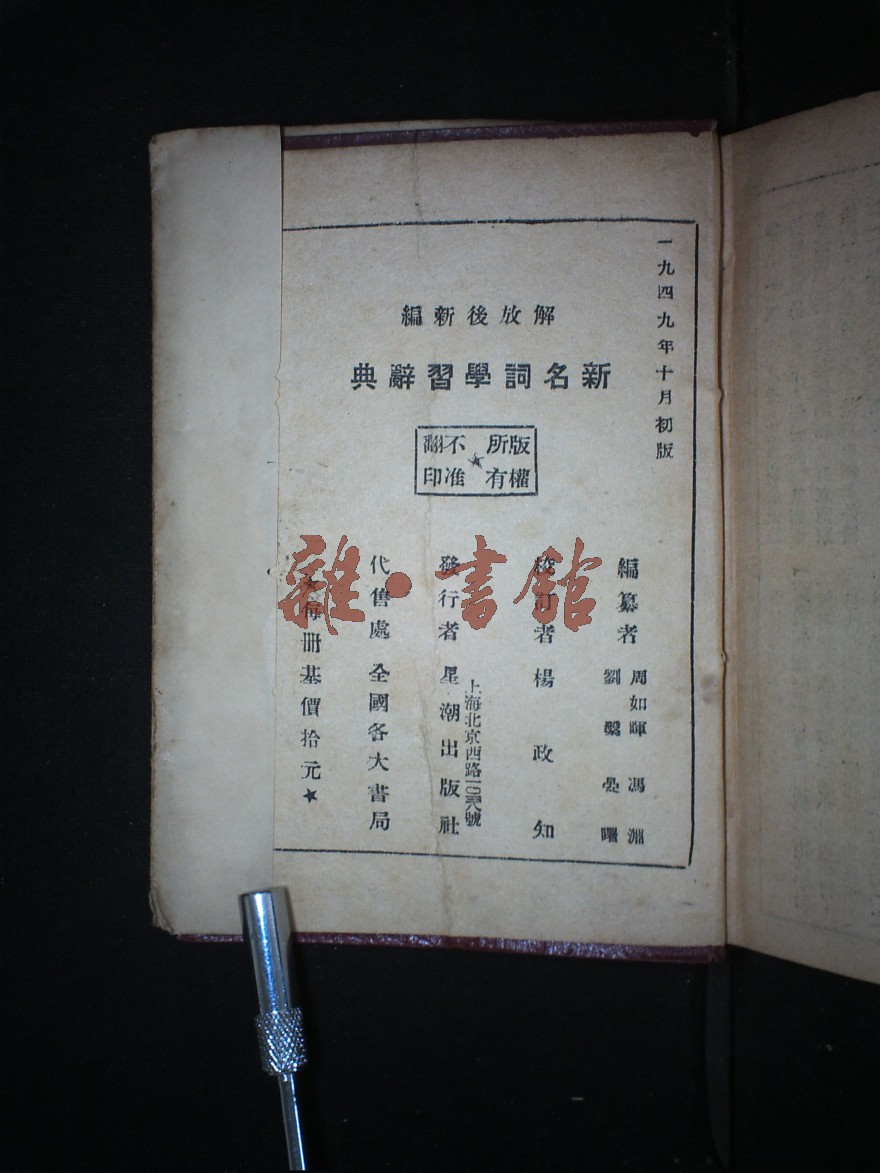 一九四九年十月初版
解放後新編
新名詞學習辭典
版權所有
不准翻印
編纂者
周如暉 馮淵
劉鑿 晏曙
校訂者 楊政知
發行者 星潮出版社
上海北京西路一〇八號
代售處 全國各大書局
★每冊基價拾元★
雜·書館